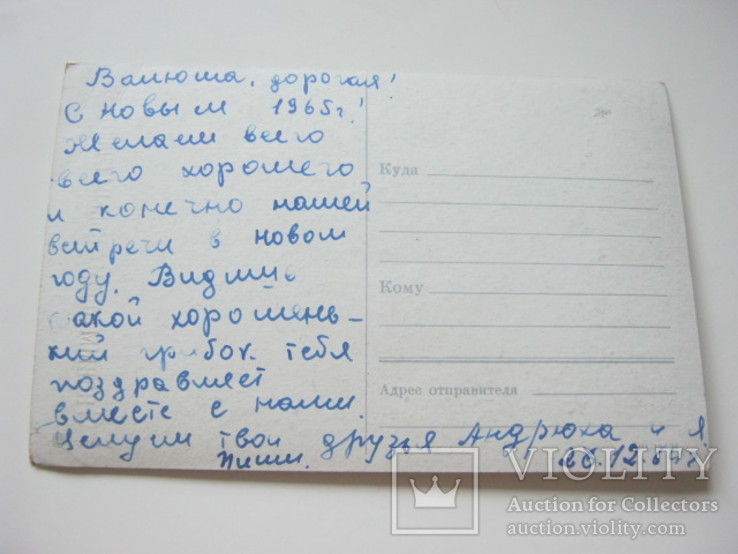 Валюша, дорогая!
С новым 1965г.!
Желаем всего
всего хорошего
и конечно нашей
встречи в новом
году. Видишь
какой хорошень-
кий грибок тебя
поздравляет
вместе с нами.
Целуем твои друзья Андрюха и Я.
Пиши. 26.12.64г.
Куда
Кому
Адрес отправителя
VIOLITY
Auction for Collectors
auction.violity.com